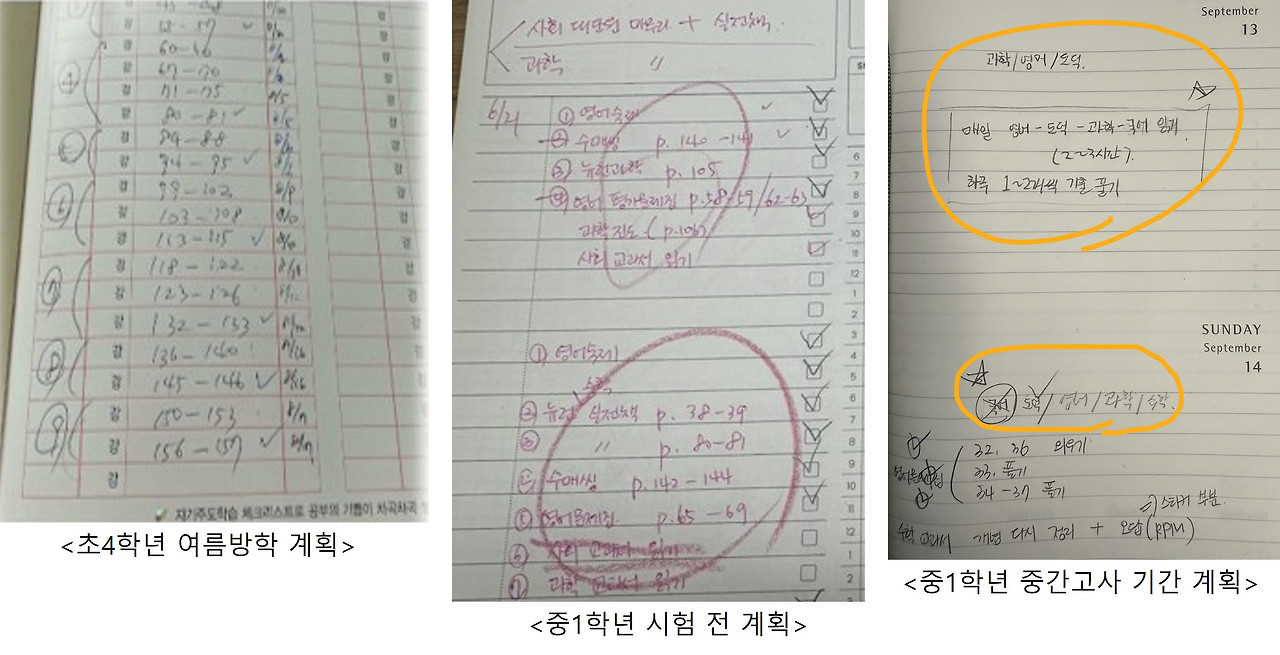 58-57 ✓
④
강 60-66
강 67-70
강 71-75 8/5
강 80-81 ✓ 8/5
강 84-88
강 94-95 ✓
⑥
강 99-102 8/8
강 103-108
강 113-115 ✓
⑦
강 118-122
강 123-126 8/12
강 132-133 ✓
⑧
강 136-140
강 145-146 ✓ 8/16
⑨
강 150-153
강 156-157 ✓
강
자기주도학습 체크리스트로 공부의 기쁨이 차곡차곡
<초4학년 여름방학 계획>
사회 대단원 마무리 + 실전책.
과학 〃
6/21 ① 영어숙제 ✓
② 수매씽 p. 140-141 ✓
③ 뉴런과학 p. 105
④ 영어 평가문제집 p.58/59/62-63
과학 진도 (p.106)
사회 교과서 읽기
① 영어숙제
수학
② 뉴런 실전책 p. 38-39
③ 〃 p. 80-81
④ 수매씽 p. 142-144
⑤ 영어문제집 p. 65-69
⑥ 사회 교과서 읽기
⑦ 과학 교과서 읽기
6
7
8
9
10
11
12
1
2
3
4
5
6
7
8
9
10
11
12
1
2
<중1학년 시험 전 계획>
September
13
과학/영어/도덕.
매일 영어-도덕-과학-국어 읽기
(2~3시간).
하루 1~2과씩 기출 풀기
SUNDAY
September
14
국어 도덕/영어/과학/수학.
32, 36 외우기
영어문제집 33, 풀기
34-37 풀기
→스타키 부분.
수학 교과서 개념 다시 정리 + 오답(RPM)
<중1학년 중간고사 기간 계획>